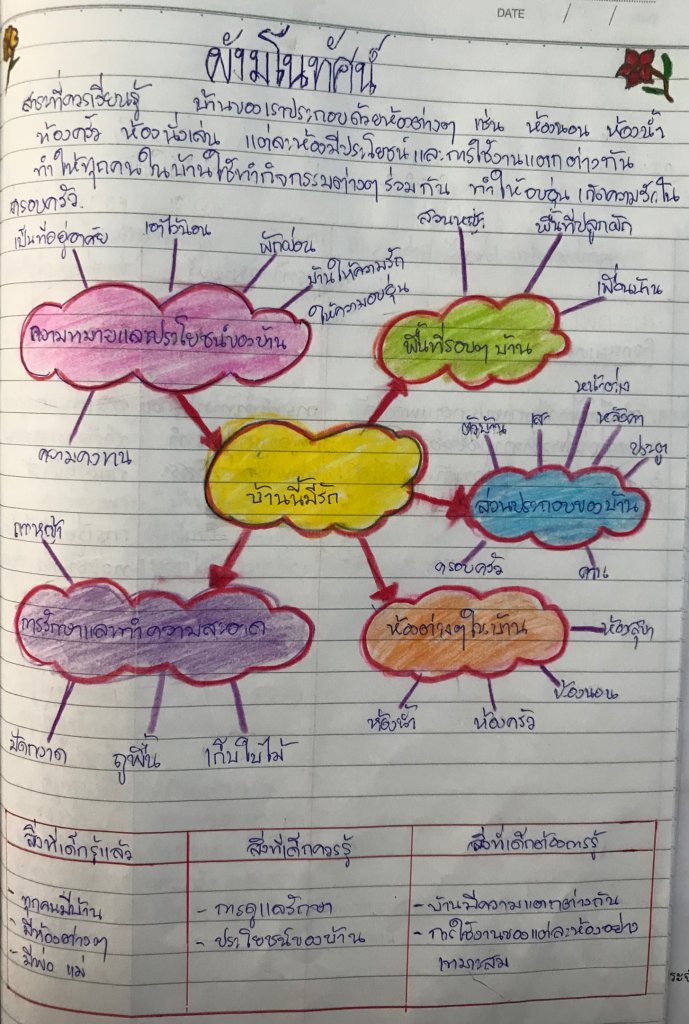 DATE / /
ผังมโนทัศน์
สาระที่ควรเรียนรู้ บ้านของเราประกอบด้วยห้องต่างๆ เช่น ห้องนอน ห้องน้ำ
ห้องครัว ห้องนั่งเล่น แต่ละห้องมีประโยชน์ และการใช้งานแตกต่างกัน
ทำให้ทุกคนในบ้านใช้ทำกิจกรรมต่างๆ ร่วมกัน ทำให้อบอุ่น เกิดความรักใน
ครอบครัว.
เป็นที่อยู่อาศัย
เอาไว้นอน
พักผ่อน
บ้านให้ความรัก
ให้ความอบอุ่น
ความหมายและประโยชน์ของบ้าน
ความคงทน
สวนหญ้า
พื้นที่ปลูกผัก
เพื่อนบ้าน
พื้นที่รอบๆ บ้าน
บ้านนี้มีรัก
ตัวบ้าน
เสา
หน้าต่าง
หลังคา
ประตู
ส่วนประกอบของบ้าน
ครอบครัว
คาน
ถางหญ้า
การรักษาและทำความสะอาด
ปัดกวาด
ถูพื้น
เก็บใบไม้
ห้องต่างๆในบ้าน
ห้องสุขา
ห้องนอน
ห้องครัว
ห้องน้ำ
สิ่งที่เด็กรู้แล้ว สิ่งที่เด็กควรรู้ สิ่งที่เด็กต้องการรู้
- ทุกคนมีบ้าน - การดูแลรักษา - บ้านมีความแตกต่างกัน
- มีห้องต่างๆ - ประโยชน์ของบ้าน - การใช้งานของแต่ละห้องอย่าง
- มีพ่อ แม่ เหมาะสม